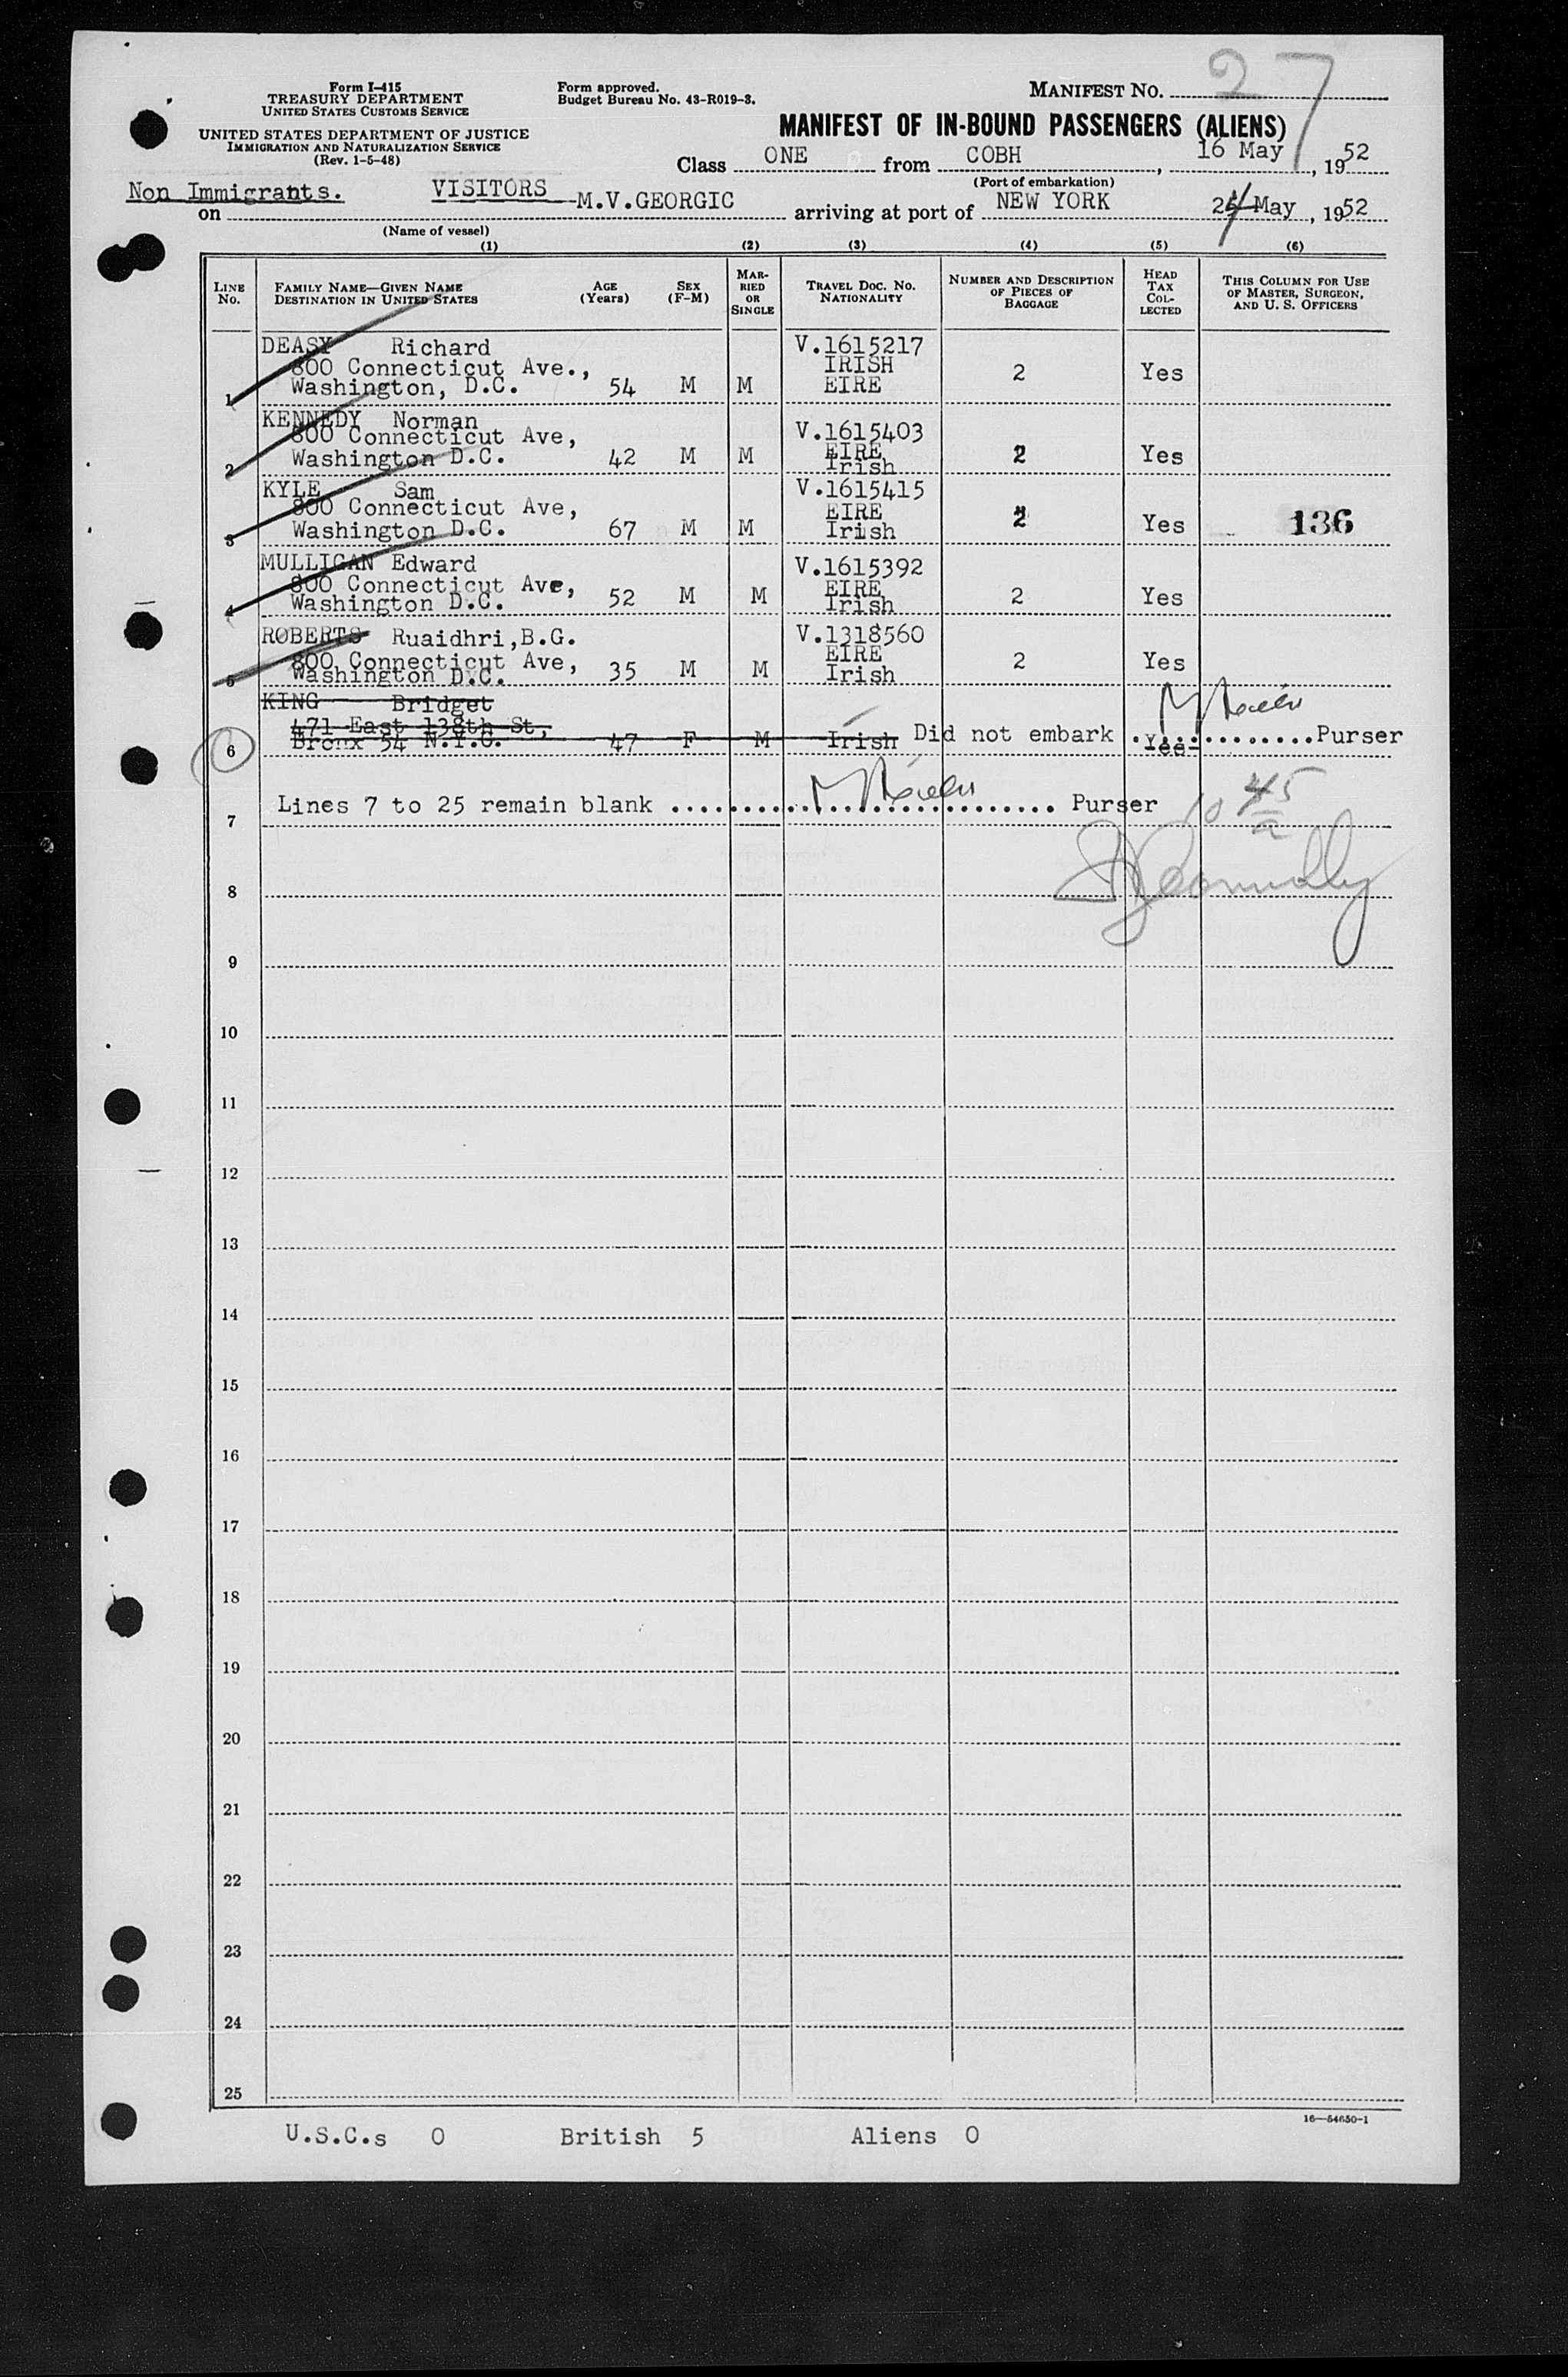 Form I-415
TREASURY DEPARTMENT
UNITED STATES CUSTOMS SERVICE
UNITED STATES DEPARTMENT OF JUSTICE
IMMIGRATION AND NATURALIZATION SERVICE
(Rev. 1-5-48)
Form approved.
Budget Bureau No. 43-R019-3.
MANIFEST NO. 27
MANIFEST OF IN-BOUND PASSENGERS (ALIENS)
Class ONE from COBH, 16 May, 1952
(Port of embarkation)
Non Immigrants. VISITORS
on M.V.GEORGIC arriving at port of NEW YORK 24 May, 1952
(Name of vessel)
(1) (2) (3) (4) (5) (6)
LINE No.
FAMILY NAME—GIVEN NAME
DESTINATION IN UNITED STATES
AGE (Years)
SEX (F-M)
MARRIED OR SINGLE
TRAVEL DOC. NO.
NATIONALITY
NUMBER AND DESCRIPTION OF PIECES OF BAGGAGE
HEAD TAX COLLECTED
THIS COLUMN FOR USE OF MASTER, SURGEON, AND U. S. OFFICERS
DEASY Richard V.1615217
800 Connecticut Ave., IRISH
1 Washington, D.C. 54 M M EIRE 2 Yes
KENNEDY Norman V.1615403
800 Connecticut Ave, EIRE
2 Washington D.C. 42 M M Irish 2 Yes
KYLE Sam V.1615415
800 Connecticut Ave, EIRE
3 Washington D.C. 67 M M Irish 2 Yes 136
MULLIGAN Edward V.1615392
800 Connecticut Ave, EIRE
4 Washington D.C. 52 M M Irish 2 Yes
ROBERTS Ruaidhri,B.G. V.1318560
800 Connecticut Ave, EIRE
5 Washington D.C. 35 M M Irish 2 Yes
KING Bridget
471 East 138th St,
6 Bronx 54 N.Y.C. 47 F M Irish Did not embark Yes Purser
7 Lines 7 to 25 remain blank Purser
10 45
8
9
10
11
12
13
14
15
16
17
18
19
20
21
22
23
24
25
16—54650-1
U.S.C.s 0 British 5 Aliens 0